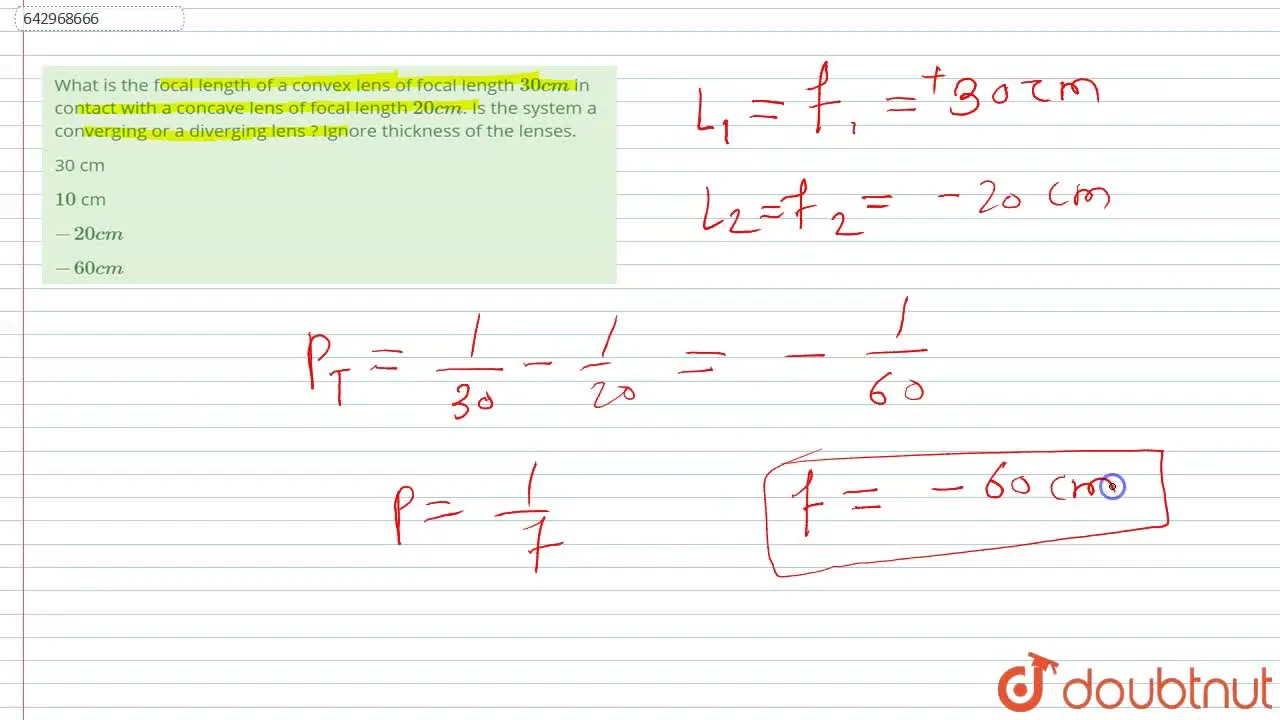 642968666
What is the focal length of a convex lens of focal length 30cm in
contact with a concave lens of focal length 20cm. Is the system a
converging or a diverging lens ? Ignore thickness of the lenses.
30 cm
10 cm
−20cm
−60cm
L₁ = f₁ = +30 cm
L₂ = f₂ = −20 cm
P_T = 1/30 − 1/20 = − 1/60
P = 1/f
f = −60 cm
doubtnut